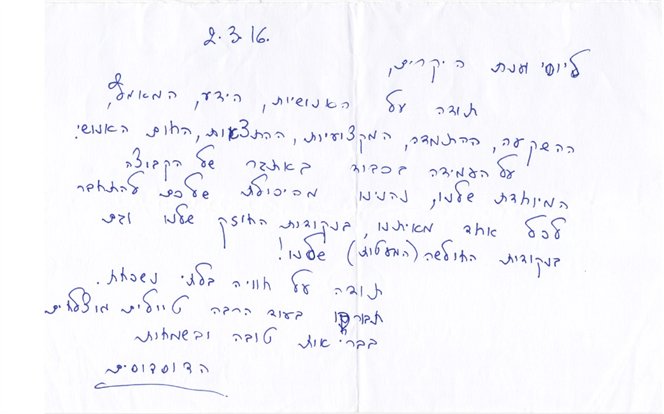 2.3.16.
ליוסי וענת היקרים,
תודה על האנושיות, הידע, המאמץ,
ההשקעה, ההתמדה, המקצועיות, ההתצאות, החום האנושי.
על העמידה בכבוד באתגר של הקבוצה
המיוחדת שלנו, נהנינו מהיכולת שלכם להתחבר
לכל אחד מאיתנו, בנקודות החוזק שלנו וגם
בנקודות החולשה (המעטות) שלנו!
תודה על חוויה בלתי נשכחת.
בעוד הרבה טיולים מוצלחים
בבריאות טובה ובשמחות
הדוסדוסים